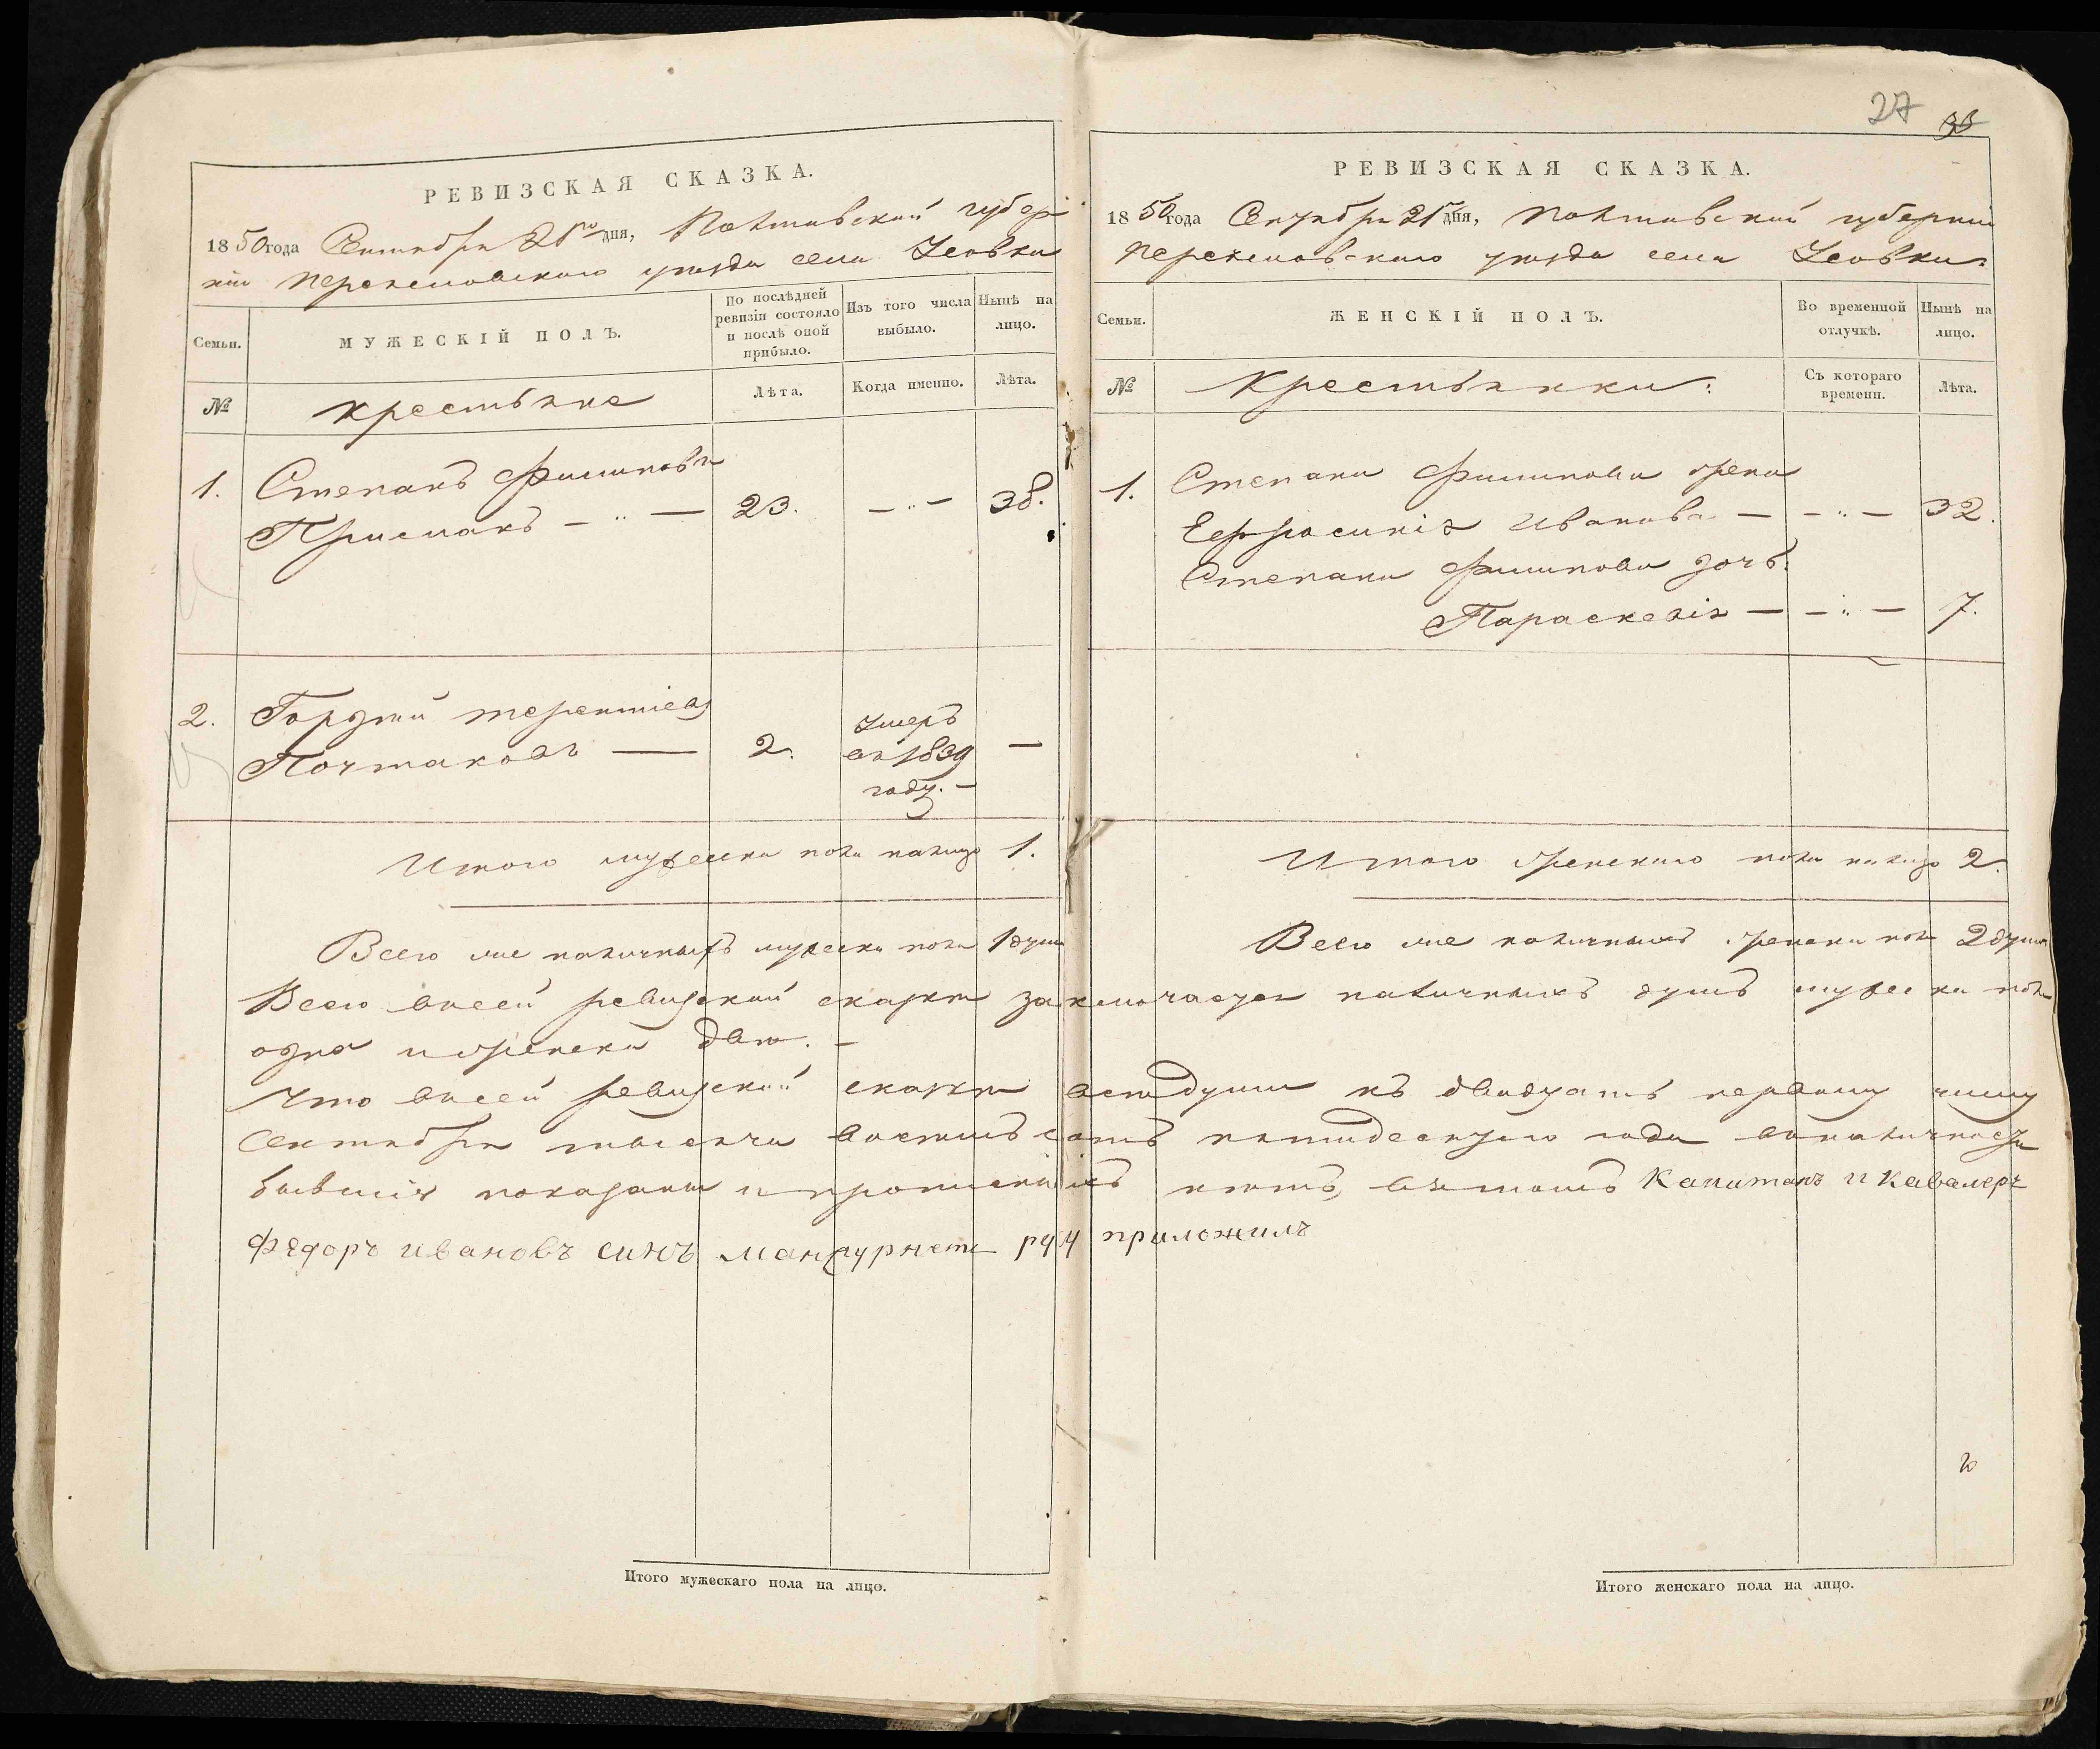 27 33
РЕВИЗСКАЯ СКАЗКА.
1850 года Сентября 21го дня, Полтавской губер
ніи Переяславскаго уезда села Усовки
Семьи. МУЖЕСКІЙ ПОЛЪ. По послѣдней ревизіи состояло и послѣ оной прибыло. Изъ того числа выбыло. Нынѣ на лицо.
№ крестьяне Лѣта. Когда именно. Лѣта.
1. Степанъ Филиповъ
Присмакъ — " — 23. — " — 38.
2. Гордѣй терентіевъ
Почтаковъ — 2. Умеръ
въ 1839
году. — —
Итого мужеска пола налицо 1.
Всего же наличныхъ мужеска пола 1 душа
РЕВИЗСКАЯ СКАЗКА.
1850 года Сентября 21 дня, Полтавской губерніи
Переяславскаго уезда села Усовки
Семьи. ЖЕНСКІЙ ПОЛЪ. Во временной отлучкѣ. Нынѣ на лицо.
№ Крестьянки: Съ котораго времени. Лѣта.
1. Степана Филипова жена
Ефросинія Иванова — — " — 32.
Степана Филипова дочь:
Параскевія — — " — 7.
Итого женскаго пола налицо 2.
Всего же наличныхъ женска пола 2 души
Всего въсей ревизской сказке заключается наличныхъ душъ мужеска пола
одна и женска две. —
Что въсей ревизской сказке все души къ двадцать первому числу
Сентября тысяча восемьсотъ пятидесятого года въналичности
бывшія показаны и прописныхъ нетъ, въ томъ Капитанъ и Кавалеръ
Федоръ Ивановъ синъ руку приложилъ
Итого мужескаго пола на лицо.
Итого женскаго пола на лицо.